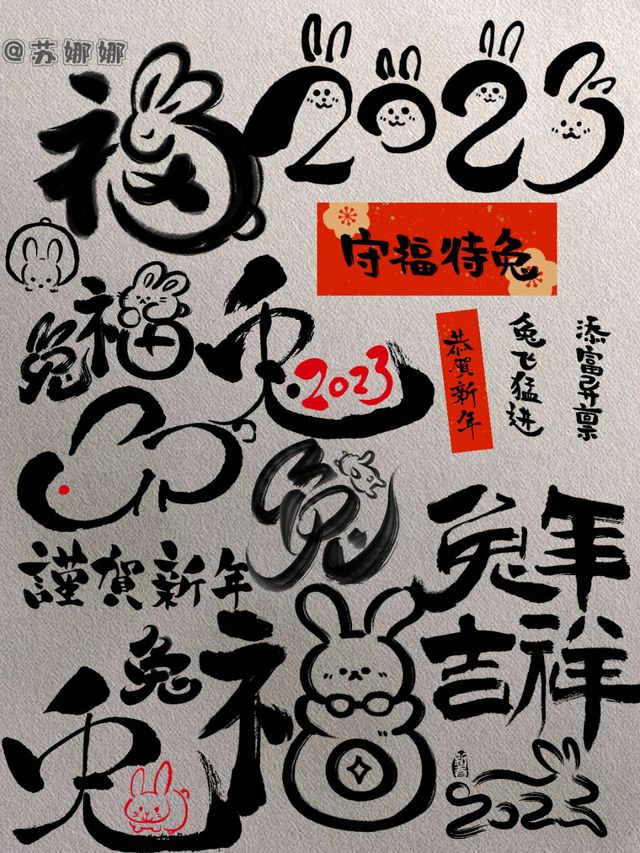 @苏娜娜
福
2023
守福特兔
兔
福
兔
2023
恭贺新年
兔飞猛进
添富开禀
兔
謹賀新年
兔年
吉祥
兔
福
兔
2023